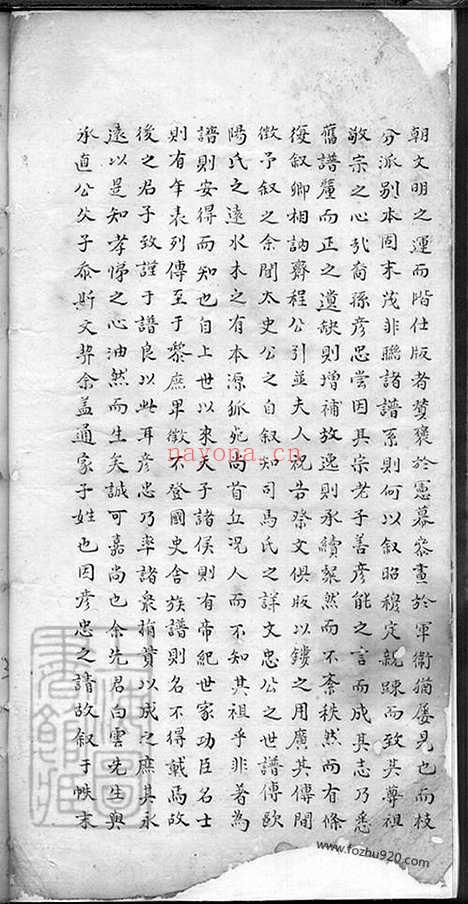 朝文明之運而階仕版者贊襄於憲幕參畫於軍衛猶屢見也而枝
分派別本固末茂非聯諸譜系則何以叙昭穆定親踈而致其尊祖
敬宗之心哉裔孫彥忠嘗因其宗老子善彥能之言而成其志乃悉
舊譜釐而正之遺缺則增補放逸則承續粲然而不紊秩然而有條
復叙卿相訥齋程公引並夫人祝告祭文俱版以鏤之用廣其傳間
徵予叙之余聞太史公之自叙知司馬氏之詳文忠公之世譜傳歐
陽氏之遠水木之有本源狐兔尚首丘况人而不知其祖乎非著為
譜則安得而知也自上世以來天子諸侯則有帝紀世家功臣名士
則有年表列傳至于黎庶卑微不登國史舍族譜則名不得載焉故
後之君子致謹于譜良以此耳彥忠乃率諸衆捐貲以成之庶其永
遠以是知孝悌之心油然而生矣誠可嘉尚也余先君白雲先生與
承直公父子忝斯文契余盖通家子姓也因彥忠之請故叙于帙末
nayona.cn
www.fozhu920.com